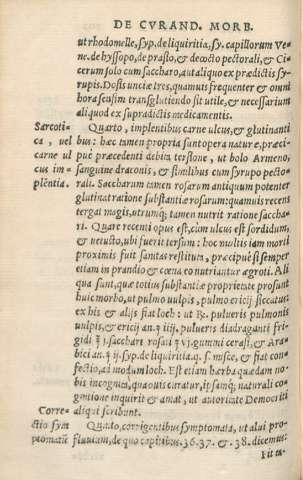 DE CVRAND. MORB.
ut rhodomelle, syp. de liquiritia, sy. capillorum Vene.
de hyssopo, de prasio, & decocto pectorali, & Cicerum
solo cum saccharo, aut aliquo ex prædictis syrupis.
Dosis unciæ tres, quamuis frequenter & omni
hora sensim transglutiendo sit utile, & necessarium
aliquod ex supradictis medicamentis.
Sarcotica,
vel
carne ul
cus implētia.
Quarto, implentibus carne ulcus, & glutinantibus:
hæc tamen propria sunt opera naturæ, præcipuè
præcedenti debita tersione, ut bolo Armeno,
sanguine draconis, & similibus cum syrupo pectorali.
Saccharum tamen rosarum antiquum potenter
glutinat ratione substantiæ rosarum: quamuis recens
tergat magis, utrumq; tamen nutrit ratione sacchari.
Quare recenti opus est, cùm ulcus est sordidum,
& uetusto, ubi fuerit tersum: hoc multis iam morti
proximis fuit sanitas restitum, præcipuè si semper
etiam in prandio & cœna eo nutriantur ægroti. Aliqua
sunt, quæ totius substantiæ proprietate prosunt
huic morbo, ut pulmo uulpis, pulmo ericij siccatus:
ex his & alijs fiat loch: ut ℞. pulueris pulmonis
uulpis, & ericij an. ʒ iij. pulueris diadraganti frigidi
ʒ j. sacchari rosati ʒ vj. gummi cerasi, & Arabici
an. ʒ ij. syp. de liquiritia q. s. misce, & fiat confectio,
ad modum loch. Est etiam hærba quædam nobis
incognita, qua ouis curatur, ipsamq; naturali cognitione
inquirit & amat, ut autoritate Democriti
aliqui scribunt.
Correctio
sym
ptomatū
Quinto, corrigentibus symptomata, ut alui profluuium,
de quo capitibus. 36. 37. & 38. dicemus:
Fit ta-